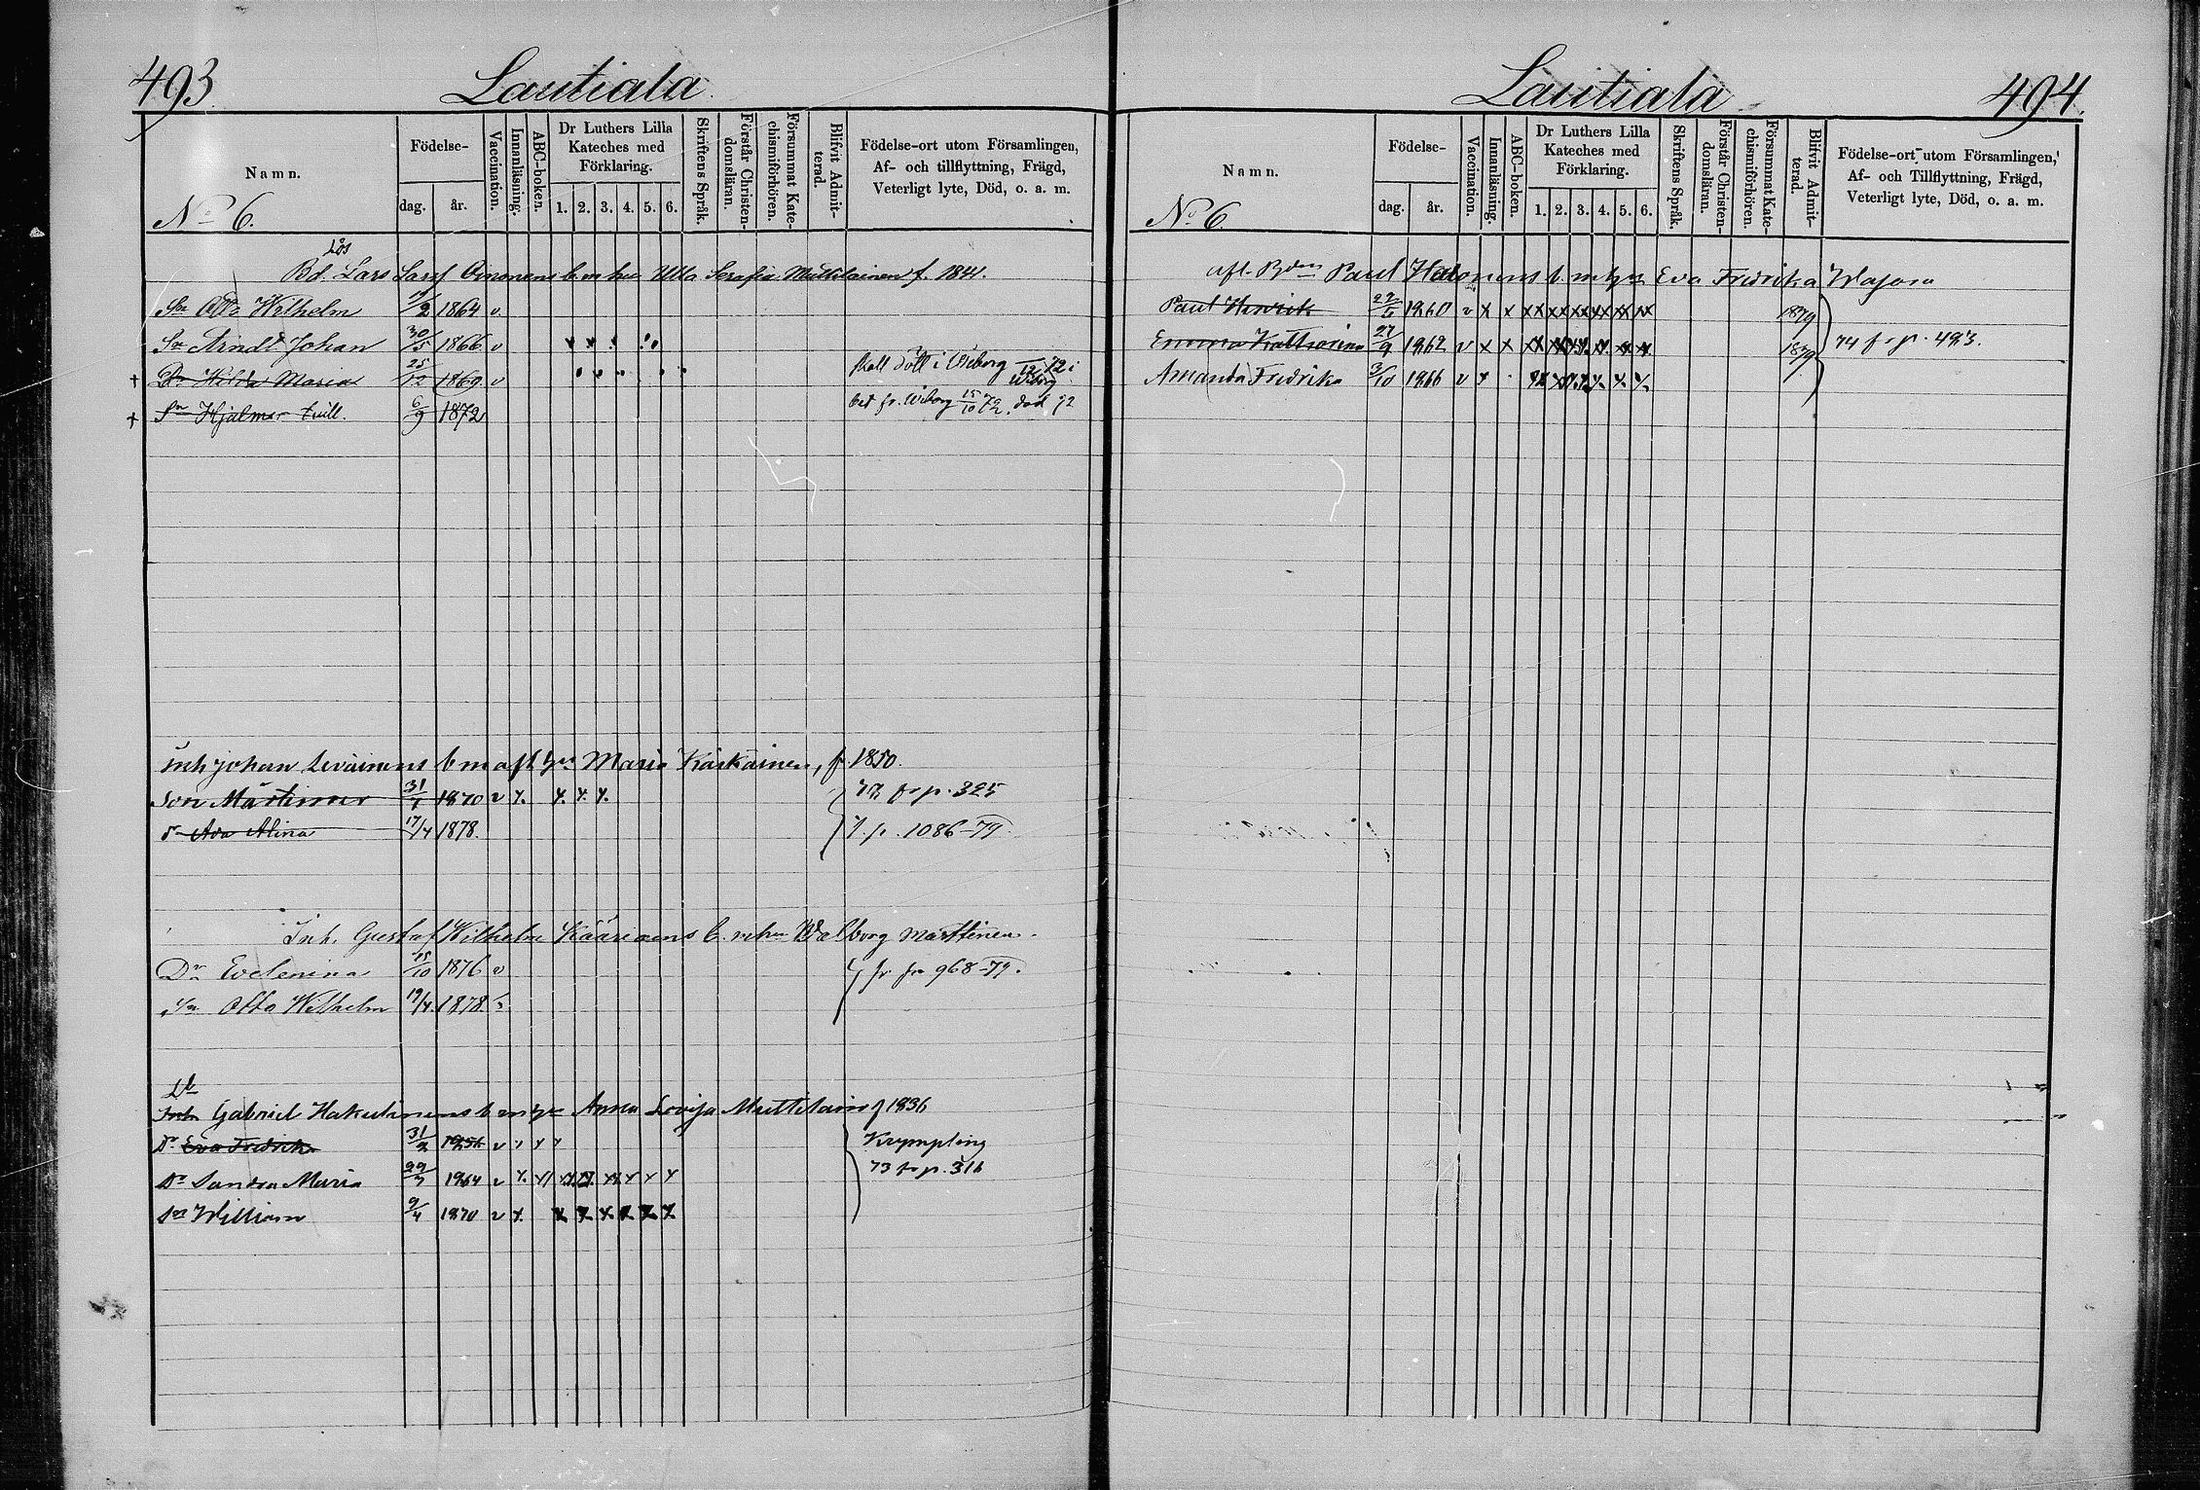 493.
Lautiala.
Namn.
Födelse-
dag.
år.
Vaccination.
Innanläsning.
ABC-boken.
Dr Luthers Lilla
Kateches med
Förklaring.
1. 2. 3. 4. 5. 6.
Skriftens Språk.
Förstår Christen-
domsläran.
Försummat Kate-
chismiförhören.
Blifvit Admit-
terad.
Födelse-ort utom Församlingen,
Af- och tillflyttning, Frägd,
Veterligt lyte, Död, o. a. m.
No 6.
Lös
Bd. Lars Oinonens b. m hu Ulla Serafia Muttilainen f. 1841.
Sn Otto Wilhelm 1/2 1864 v.
Sn Arndt Johan 30/5 1866 v
Dr Hilda Maria 25/12 1869 v i Wiborg 72 i
Sn Hjalmar 6/9 1872 fr. Wiborg 15/10 72. död 72
Inh Johan Leväinens b m aft hu Maria Kärkäinen, f. 1850.
Son Mårten 31/1 1870 v x. x. x. x. fr p. 325
dr Ada Alina 17/4 1878. 1086-79.
Inh. Gustaf Wilhelm Kääriäens b. m hu Walborg Marttinen.
Dr Evelenina 15/10 1876 v fr 968-79.
Sn Otto Wilhelm 19/4 1878
Inh Gabriel Hakulinens b m hu Anna Lovisa Muttilain f 1836
Dr Eva Fredrika 31/2 v x x x Krympling
Dr Sandra Maria 29/7 1864 v 73 fr p. 316
Sn William 9/4 1870 v x. x x x x x x
Lautiala
494.
Namn.
Födelse-
dag.
år.
Vaccination.
Innanläsning.
ABC-boken.
Dr Luthers Lilla
Kateches med
Förklaring.
1. 2. 3. 4. 5. 6.
Skriftens Språk.
Förstår Christen-
domsläran.
Försummat Kate-
chismiförhören.
Blifvit Admit-
terad.
Födelse-ort utom Församlingen,
Af- och Tillflyttning, Frägd,
Veterligt lyte, Död, o. a. m.
No 6.
Afl. Bdens Paul Halonens b m hu Eva Fredrika Wajora
Paul Henrik 1860 v x x xx xx xx xx xx xx 1879
Emma Kattarina 27/9 1862 v x x xx xx xx xx xx xx 1879 74 fr p. 493.
Amanda Fredrika 3/10 1866 v x